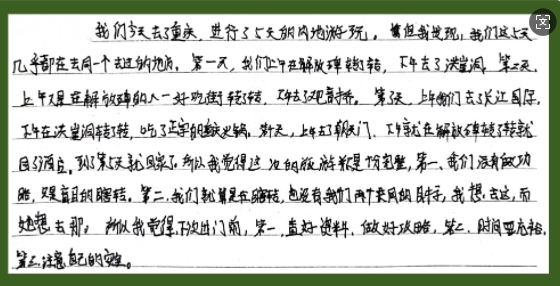 我们今天去了重庆，进行了5天的内地游玩。但我发现，我们这5天
几乎都在去同一个去过的地方。第一天，我们上午在解放碑转了转，下午去了洪崖洞。第二天，
上午又是在解放碑的八一好吃街转了转，下午去了观音桥。第3天，上午我们去了长江国际，
下午在洪崖洞转了转，吃了正宗的重庆火锅。第4天，上午去了朝天门，下午就在解放碑转了转就
回了酒店。到了第5天就回家了。所以我觉得这次的旅游并不完整，第一，我们没有做功
略，只是盲目的瞎转。第二，我们就算是在瞎转，也没有我们两个喜同的，我想去这，而
她想去那。所以我觉得下次出门前，第一，查好资料，做好攻略，第二，时间要充裕，
第三，注意自己的安全。